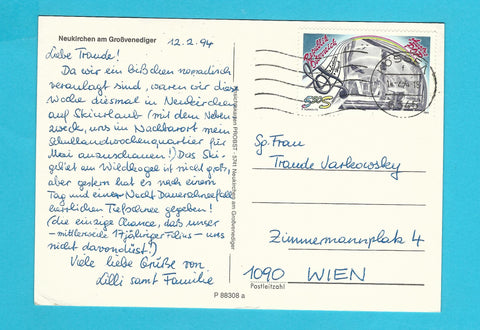 Neukirchen am Großvenediger
12.2.94
Liebe Traude!
Da wir ein bißchen nomadisch
veranlagt sind, waren wir diese
Woche diesmal in Neukirchen
auf Skiurlaub (mit dem Neben-
zweck, uns im Nachbarort mein
Schullandwochenquartier für
Mai anzuschauen!) Das Ski-
gebiet am Wildkogel ist nicht groß,
aber gestern hat es nach einem
Tag und einer Nacht Dauerschneefall
herrlichen Tiefschnee gegeben!
(die einzige Chance, daß unser
- mittlerweile 17jähriger Filius - uns
nicht davondüst!)
Viele liebe Grüße von
Lilli samt Familie
PROBST · 5741 Neukirchen am Großvenediger
P 88308 a
Republik
Österreich
5.00 S
Sp. Frau
Traude Varkowsky
Zimmermannplatz 4
1090 WIEN
Postleitzahl